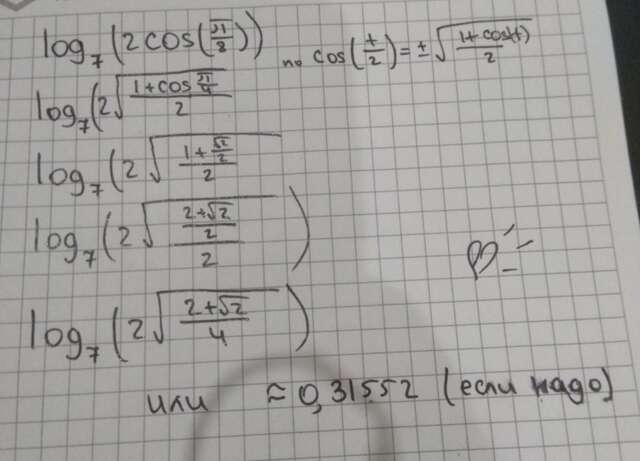 log₇(2cos(π/8)) по cos(t/2)=±√((1+cos(t))/2)
log₇(2√((1+cos π/4)/2)
log₇(2√((1+√2/2)/2)
log₇(2√(((2+√2)/2)/2))
log₇(2√((2+√2)/4))
или ≈ 0,31552 (если надо)